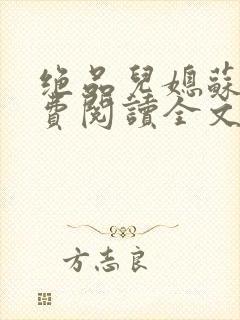 绝品兒媳蘇
費閱讀全文
方志良